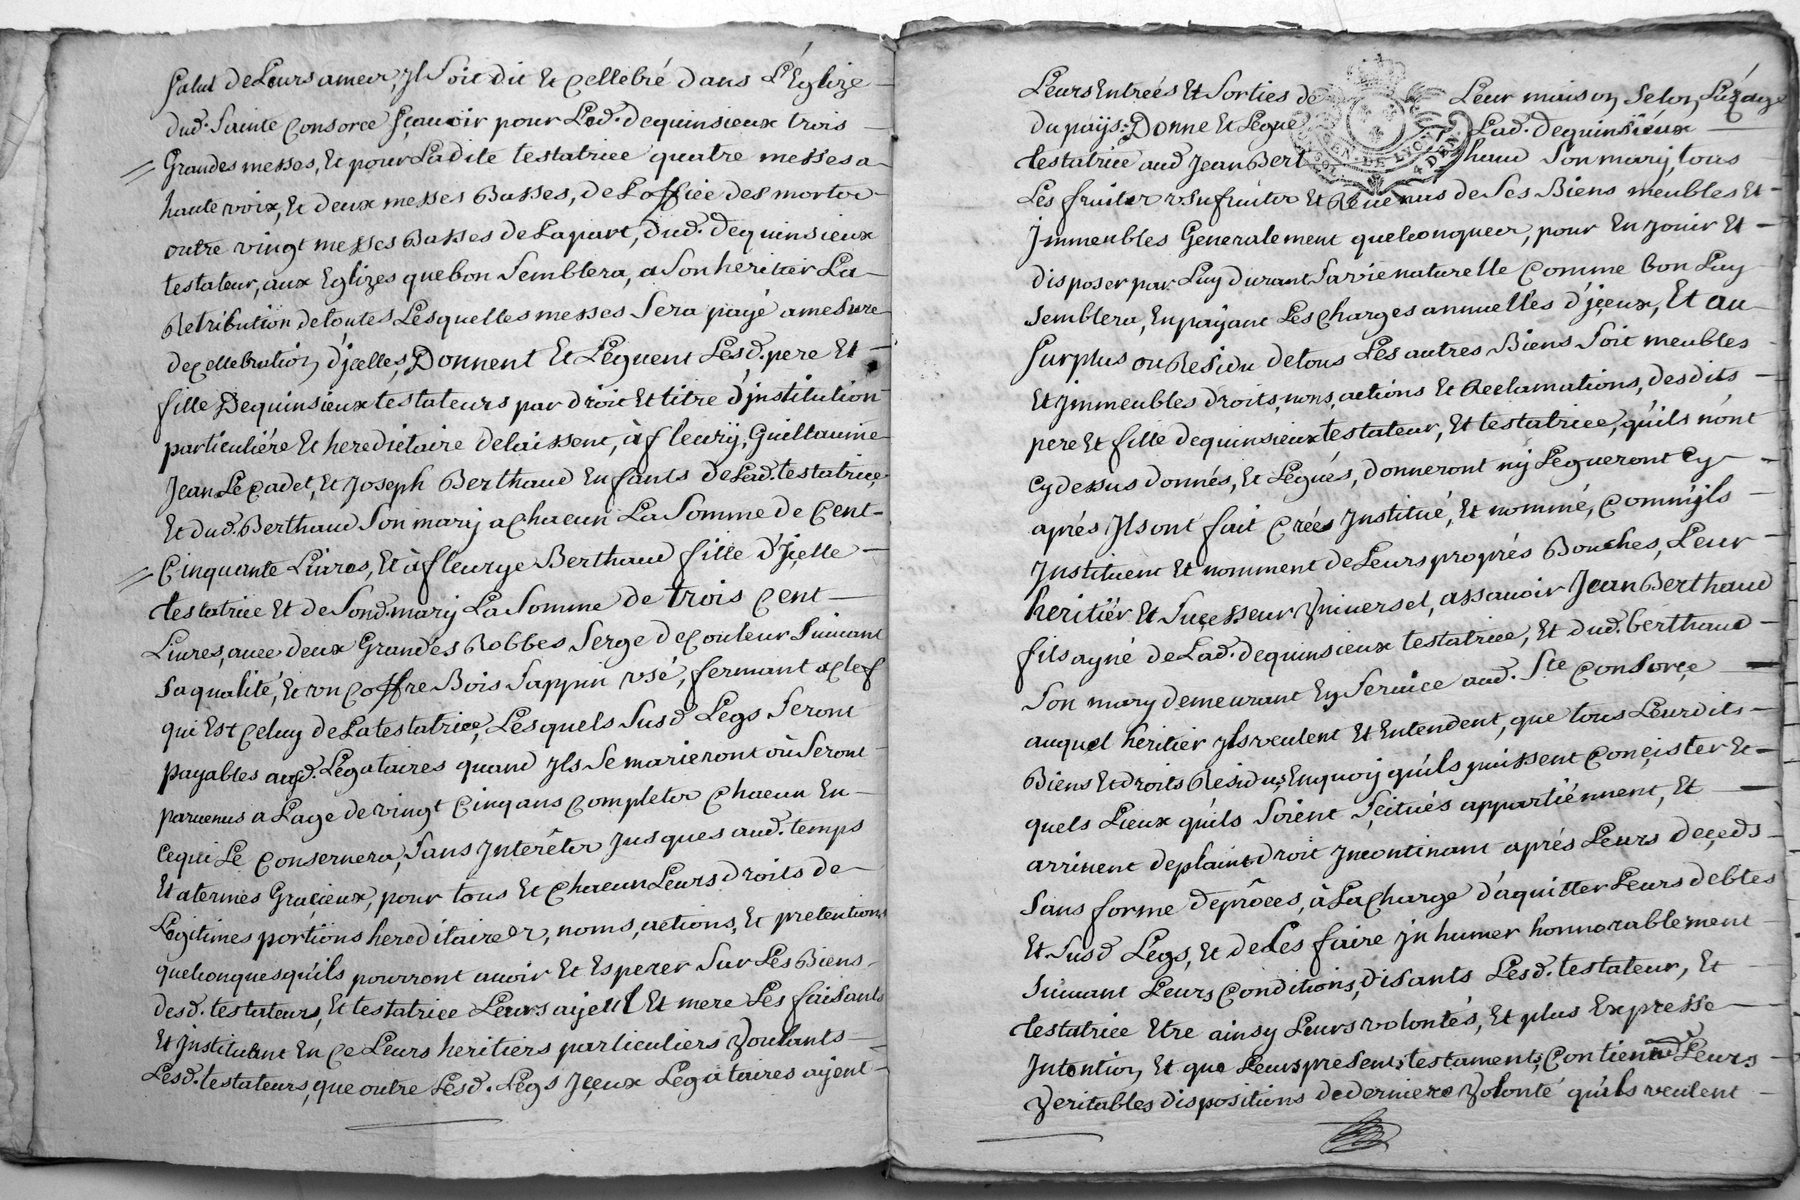 salut de Leurs ames, jl Soit dit Et Cellebré dans L'Églize
dud. Sainte Consorce Sçauoir pour Led. dequinsieux trois
Grandes messes, Et pour Ladite testatrice quatre messes a
haute voix, Et deux messes Basses, de Loffice des morts
outre vingt messes Basses de La part, dud. dequinsieux
testateur, aux Eglizes que bon Semblera, a Son heritier La
Retribution de toutes Lesquelles messes Sera payé amesure
de Cellebration d'jcelles, Donnent Et Leguent Lesd. pere Et
fille Dequinsieux testateurs par droit Et titre d'jnstitution
particuliére Et heredictaire delaissent, à fleurij, Guillaume
Jean Le Cadet, Et Joseph Berthaud Enfants de Lad. testatrice
Et dud. Berthaud Son marij a Chacun La Somme de Cent
Cinquante Liures, Et à fleurye Berthaud fille d'Jcelle
testatrice Et de Sond. marij La Somme de trois Cent
Liures, auec deux Grandes Robbes Serge de Couleur Suiuant
Sa qualité, Et vn Coffre Bois Sappin vsé, fermant a Clef
qui Est Celuy de La testatrice, Lesquels Susd Legs Seront
payables ausd. Légataires quand jls Se marieront où Seront
paruenus a L'age de vingt Cinq ans Complets Chacun En
ce qui Le Consernera, Sans Jnterêts Jusques aud. temps
Et atermes Gracieux, pour tous Et Chacun Leurs droits de
Légitimes portions hereditaires, noms, actions, Et pretentions
quelconques qu'ils pourront auoir Et Esperer Sur Les Biens
desd. testateurs, Et testatrice Leurs ayeul Et mere Les faisants
Et Jnstituant En Ce Leurs heritiers particuliers Voulants
Lesd. testateurs, que outre Lesd. Legs Jceux Legataires ayent
Leurs Entrées Et Sorties de Leur maison Selon L'uzage
du pays; Donne Et Legue Lad. dequinsieux
testatrice aud Jean Berthaud Son marij, tous
Les fruits vsufruits Et Reuenus de Ses Biens meubles Et
Jmmeubles Generalement quelconques, pour En jouir Et
disposer par Luy durant Sa vie naturelle Comme bon Luy
Semblera, En payant Les Charges annuelles d'jceux, Et au
Surplus ou Residu de tous Les autres Biens Soit meubles
Et jmmeubles droits, noms, actions Et Reclamations, desdits
pere Et fille dequinsieux testateur, Et testatrice, qu'ils n'ont
Cy dessus donnés, Et Légués, donneront nij Légueront Cy
aprés Jls ont fait Crées Jnstitué, Et nommé, Comm'jls
Jnstituent Et nomment de Leurs proprés Bouches, Leur
heritiér Et Sucçesseur Vniuersel, assauoir Jean Berthaud
fils ayné de Lad. dequinsieux testatrice, Et dud. berthaud
Son mary demeurant En Seruice aud. Ste Consorçe
auquel héritier jls veulent Et Entendent, que tous Leurdits
Biens Et droits Residus, En quoij qu'ils puissent Conçister Et
quels Lieux qu'ils Soient Scitués appartiénnent, Et
arriuent de plain droit Jncontinant aprés Leurs deçeds
Sans forme de prôces, à La Charge d'aquitter Leurs debtes
Et Susd Legs, Et de Les faire jnhumer honnorablement
Suiuant Leurs Conditions, disants Lesd. testateur, Et
testatrice Etre ainsy Leurs volontés, Et plus Expresse
Jntention, Et que Leurs presents testaments, Contiennent Leurs
Veritables dispositions de derniere Volonté qu'ils veulent
GEN. DE LYON
4 DEN.